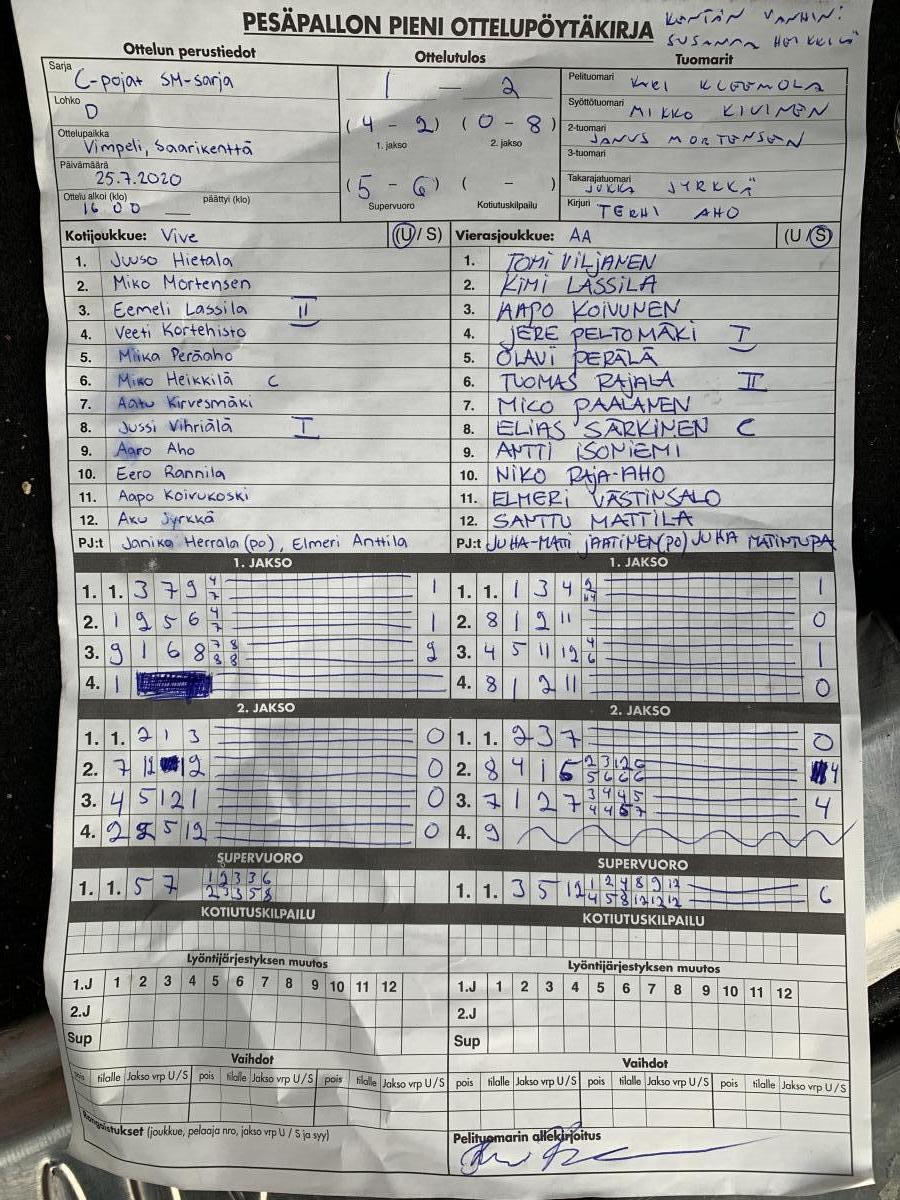 PESÄPALLON PIENI OTTELUPÖYTÄKIRJA
KENTÄN VANHIN:
SUSANNA HEIKKILÄ
Ottelun perustiedot
Sarja
C-pojat SM-sarja
Lohko
D
Ottelupaikka
Vimpeli, Saarikenttä
Päivämäärä
25.7.2020
Ottelu alkoi (klo) päättyi (klo)
16 00
Ottelutulos
1 — 2
(4 - 2) (0 - 8)
1. jakso 2. jakso
(5 - 6) ( - )
Supervuoro Kotiutuskilpailu
Tuomarit
Pelituomari KARI KLEEMOLA
Syöttötuomari MIKKO KIVINEN
2-tuomari JANUS MORTENSEN
3-tuomari
Takarajatuomari JUKKA JYRKKÄ
Kirjuri TERHI AHO
Kotijoukkue: Vive (U / S)
1. Juuso Hietala
2. Miko Mortensen
3. Eemeli Lassila II
4. Veeti Kortehisto
5. Miika Peräaho
6. Miko Heikkilä C
7. Aatu Kirvesmäki
8. Jussi Vihriälä I
9. Aaro Aho
10. Eero Rannila
11. Aapo Koivukoski
12. Aku Jyrkkä
PJ:t Janika Herrala (po), Elmeri Anttila
Vierasjoukkue: AA (U / S)
1. TOMI VILJANEN
2. KIMI LASSILA
3. AAPO KOIVUNEN
4. JERE PELTOMÄKI I
5. OLAVI PERÄLÄ
6. TUOMAS RAJALA II
7. MICO PAALANEN
8. ELIAS SÄRKINEN C
9. ANTTI ISONIEMI
10. NIKO RAJA-AHO
11. ELMERI VÄSTINSALO
12. SANTTU MATTILA
PJ:t JUHA-MATI JAATINEN (PO) JUHA MATINTUPA
1. JAKSO
1. 1. 3 7 9 4 7 1
2. 1 2 5 6 4 7 1
3. 9 1 6 8 7 8 8 8 2
4. 1
1. JAKSO
1. 1. 1 3 4 1
2. 8 1 2 11 0
3. 4 5 11 12 4 6 1
4. 8 1 2 11 0
2. JAKSO
1. 1. 2 1 3 0
2. 7 12 12 0
3. 4 5 12 1 0
4. 2 5 12 0
2. JAKSO
1. 1. 2 3 7 0
2. 8 4 1 6 2 3 12 6 5 6 6 6 4
3. 7 1 2 7 3 4 4 5 4 4 6 7 4
4. 9
SUPERVUORO
1. 1. 5 7 1 2 3 3 6 2 3 3 5 8
SUPERVUORO
1. 1. 3 5 12 1 2 4 8 9 12 4 5 8 12 12 12 6
KOTIUTUSKILPAILU
KOTIUTUSKILPAILU
Lyöntijärjestyksen muutos
1.J 1 2 3 4 5 6 7 8 9 10 11 12
2.J
Sup
Lyöntijärjestyksen muutos
1.J 1 2 3 4 5 6 7 8 9 10 11 12
2.J
Sup
Vaihdot
pois tilalle Jakso vrp U/S pois tilalle Jakso vrp U/S pois tilalle Jakso vrp U/S
Vaihdot
pois tilalle Jakso vrp U/S pois tilalle Jakso vrp U/S pois tilalle Jakso vrp U/S
Rangaistukset (joukkue, pelaaja nro, jakso vrp U / S ja syy)
Pelituomarin allekirjoitus